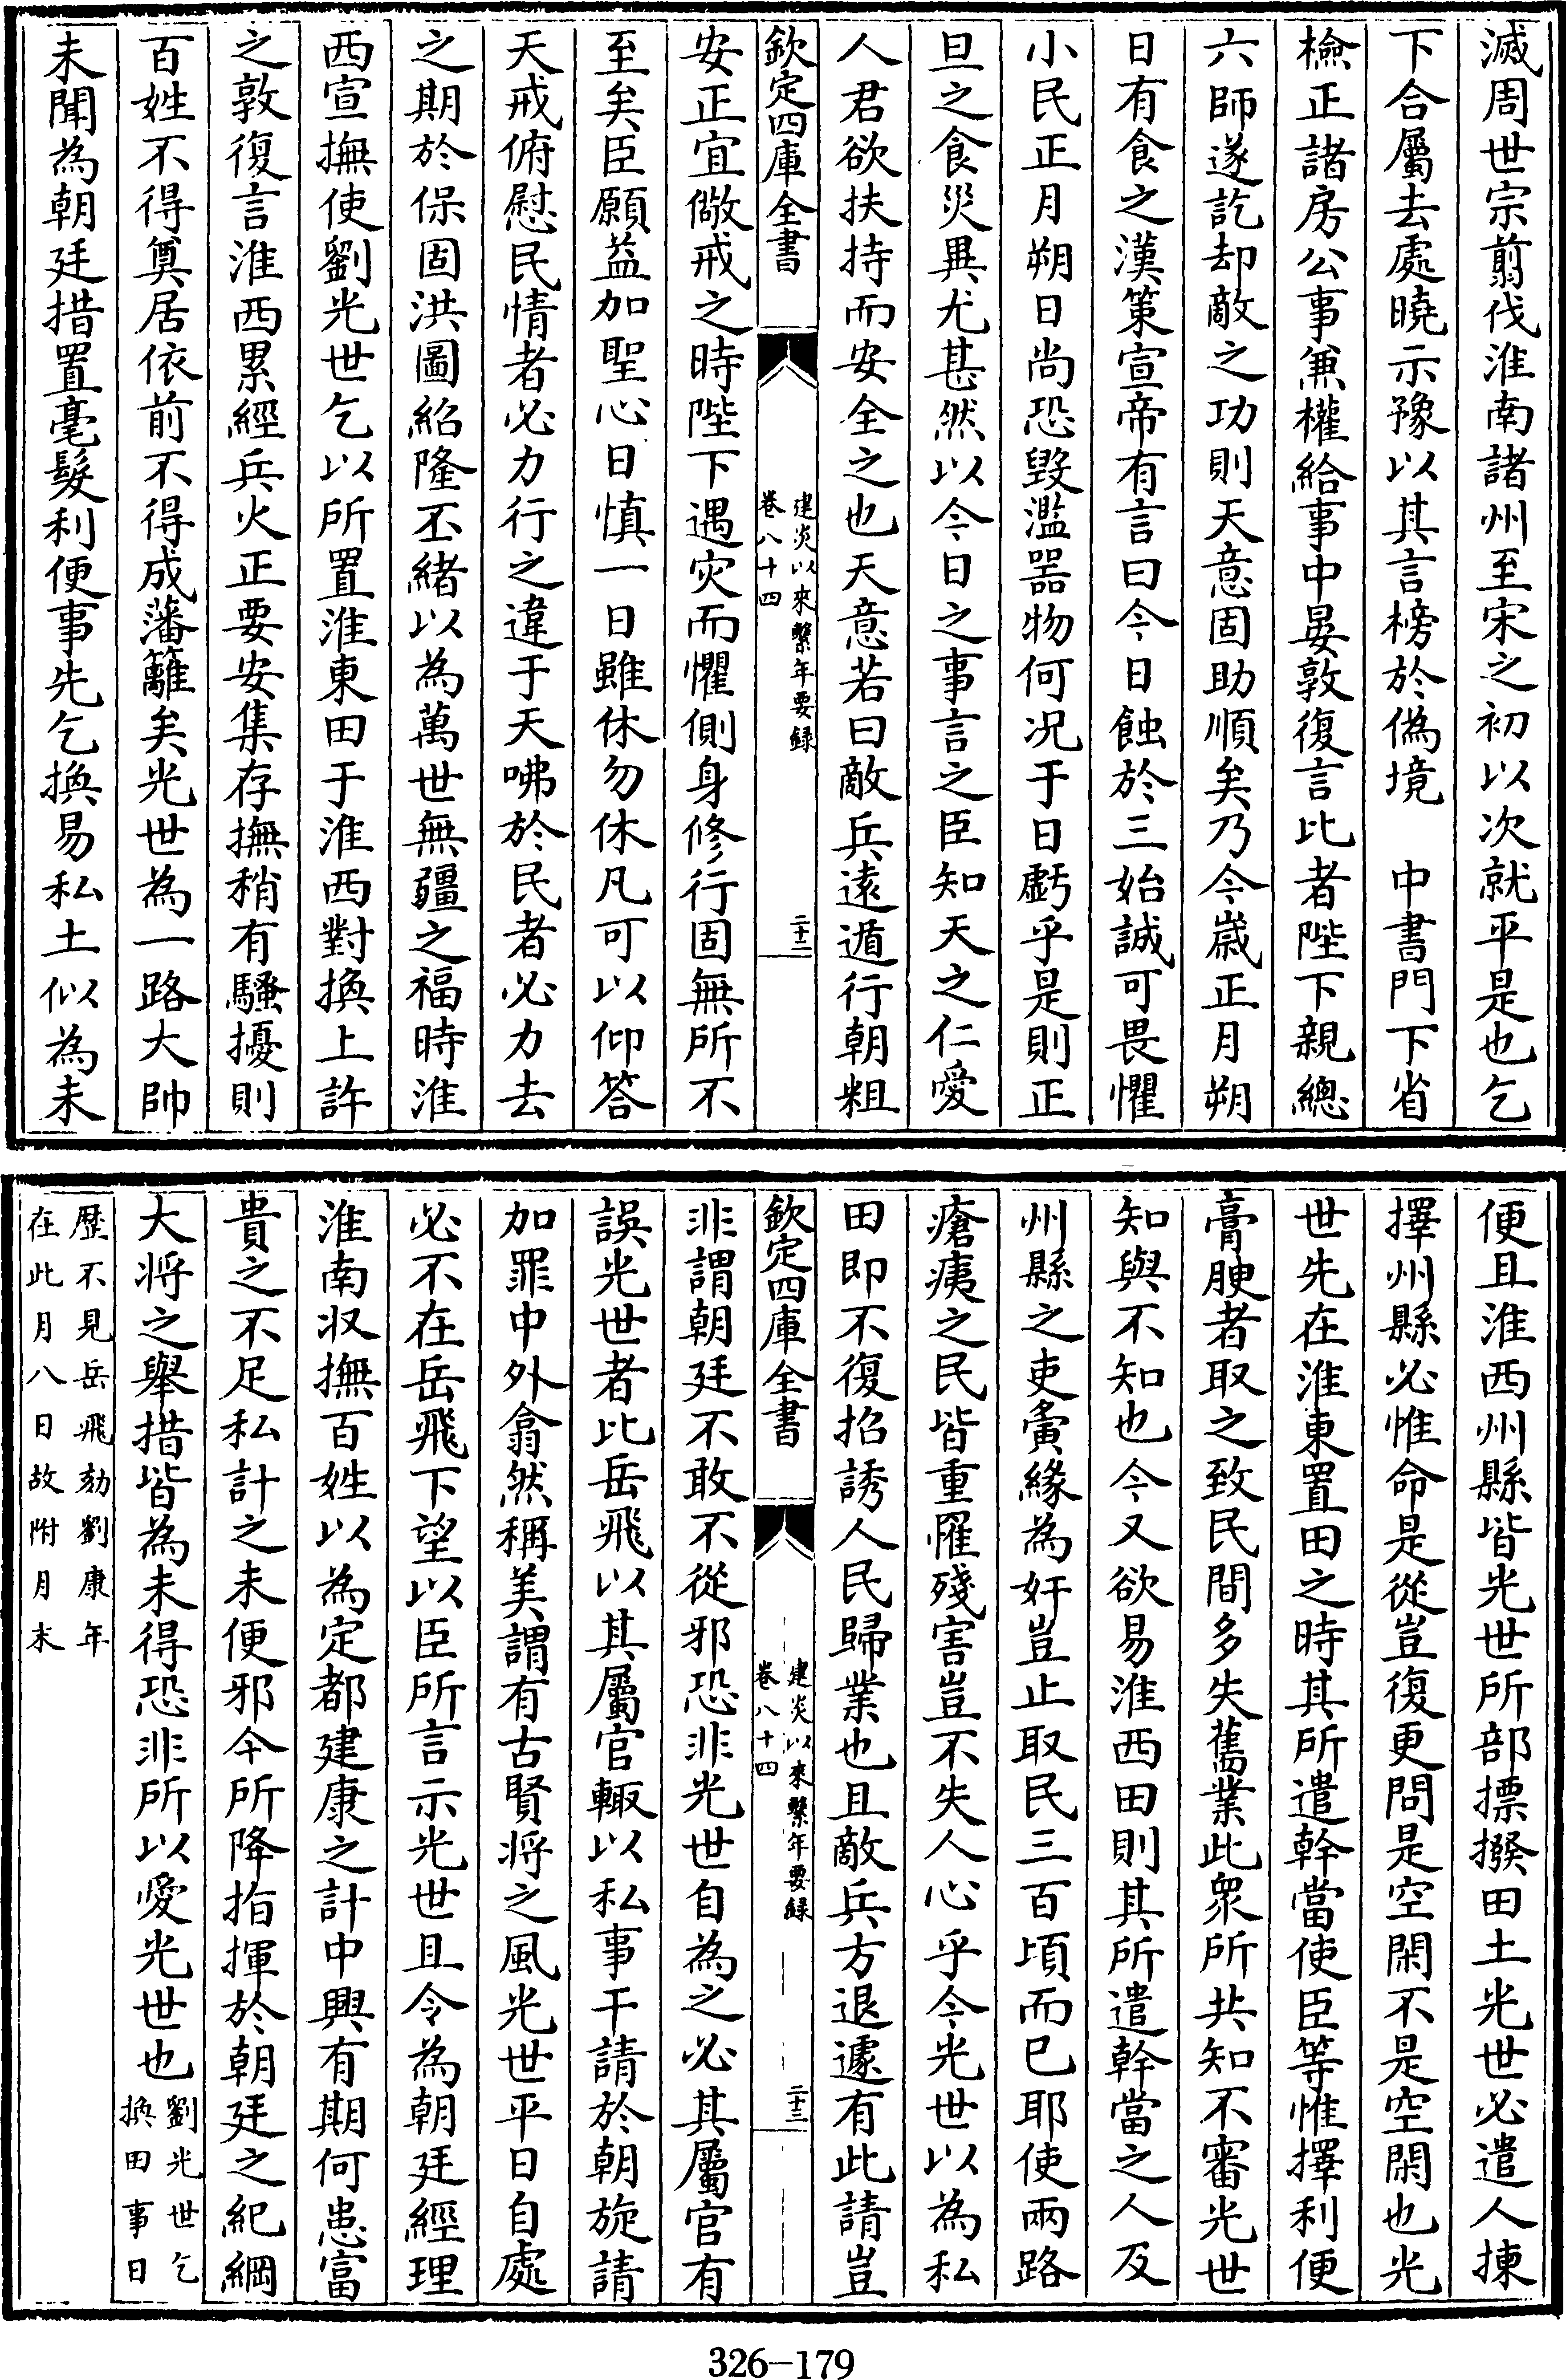 滅周世宗翦伐淮南諸州至宋之初以次就平是也乞
下合屬去處曉示豫以其言榜於偽境　中書門下省
檢正諸房公事兼權給事中晏敦復言比者陛下親總
六師遂訖却敵之功則天意固助順矣乃今歲正月朔
日有食之漢策宣帝有言曰今日蝕於三始誠可畏懼
小民正月朔日尚恐毀濫噐物何况于日虧乎是則正
旦之食災異尤甚然以今日之事言之臣知天之仁愛
人君欲扶持而安全之也天意若曰敵兵遠遁行朝粗
欽定四庫全書
建炎以來繫年要録
卷八十四
二十二
安正宜儆戒之時陛下遇灾而懼側身修行固無所不
至矣臣願益加聖心日慎一日雖休勿休凡可以仰答
天戒俯慰民情者必力行之違于天咈於民者必力去
之期於保固洪圖紹隆丕緒以為萬世無疆之福時淮
西宣撫使劉光世乞以所置淮東田于淮西對換上許
之敦復言淮西累經兵火正要安集存撫稍有騷擾則
百姓不得奠居依前不得成藩籬矣光世為一路大帥
未聞為朝廷措置毫髮利便事先乞換易私土似為未
便且淮西州縣皆光世所部摽撥田土光世必遣人揀
擇州縣必惟命是從豈復更問是空閑不是空閑也光
世先在淮東置田之時其所遣幹當使臣等惟擇利便
膏腴者取之致民間多失舊業此衆所共知不審光世
知與不知也今又欲易淮西田則其所遣幹當之人及
州縣之吏夤緣為奸豈止取民三百頃而已耶使兩路
瘡痍之民皆重罹殘害豈不失人心乎今光世以為私
田即不復招誘人民歸業也且敵兵方退遽有此請豈
欽定四庫全書
建炎以來繫年要録
卷八十四
二十三
非謂朝廷不敢不從邪恐非光世自為之必其屬官有
誤光世者比岳飛以其屬官輙以私事干請於朝旋請
加罪中外翕然稱美謂有古賢将之風光世平日自處
必不在岳飛下望以臣所言示光世且令為朝廷經理
淮南収撫百姓以為定都建康之計中興有期何患富
貴之不足私計之未便邪今所降指揮於朝廷之紀綱
大将之舉措皆為未得恐非所以愛光世也劉光世乞
換田事日
歷不見岳飛劾劉康年
在此月八日故附月末
326—179